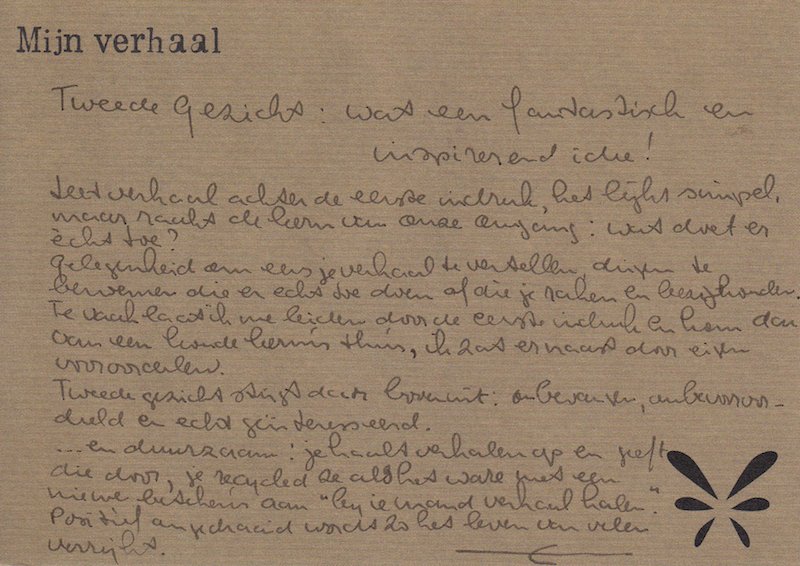 Mijn verhaal
Tweede Gezicht: wat een fantastisch en
inspirerend idee!
Het verhaal achter de eerste indruk, het lijkt simpel,
maar raakt de kern van onze omgang: wat doet er
écht toe?
Gelegenheid om eens je verhaal te vertellen, dingen te
benoemen die er echt toe doen of die je raken en bezighouden.
Te vaak laat ik me leiden door de eerste indruk en kom dan
van een koude kermis thuis, ik zat ernaast door eigen
vooroordelen.
Tweede gezicht stijgt daar bovenuit: onbevangen, onbevooroor-
deeld en echt geïnteresseerd.
... en duurzaam: je haalt verhalen op en geeft
die door, je recycled ze als het ware met een
nieuwe betekenis aan "bij iemand verhaal halen".
Positief aangedraaid wordt zo het leven van velen
verrijkt.